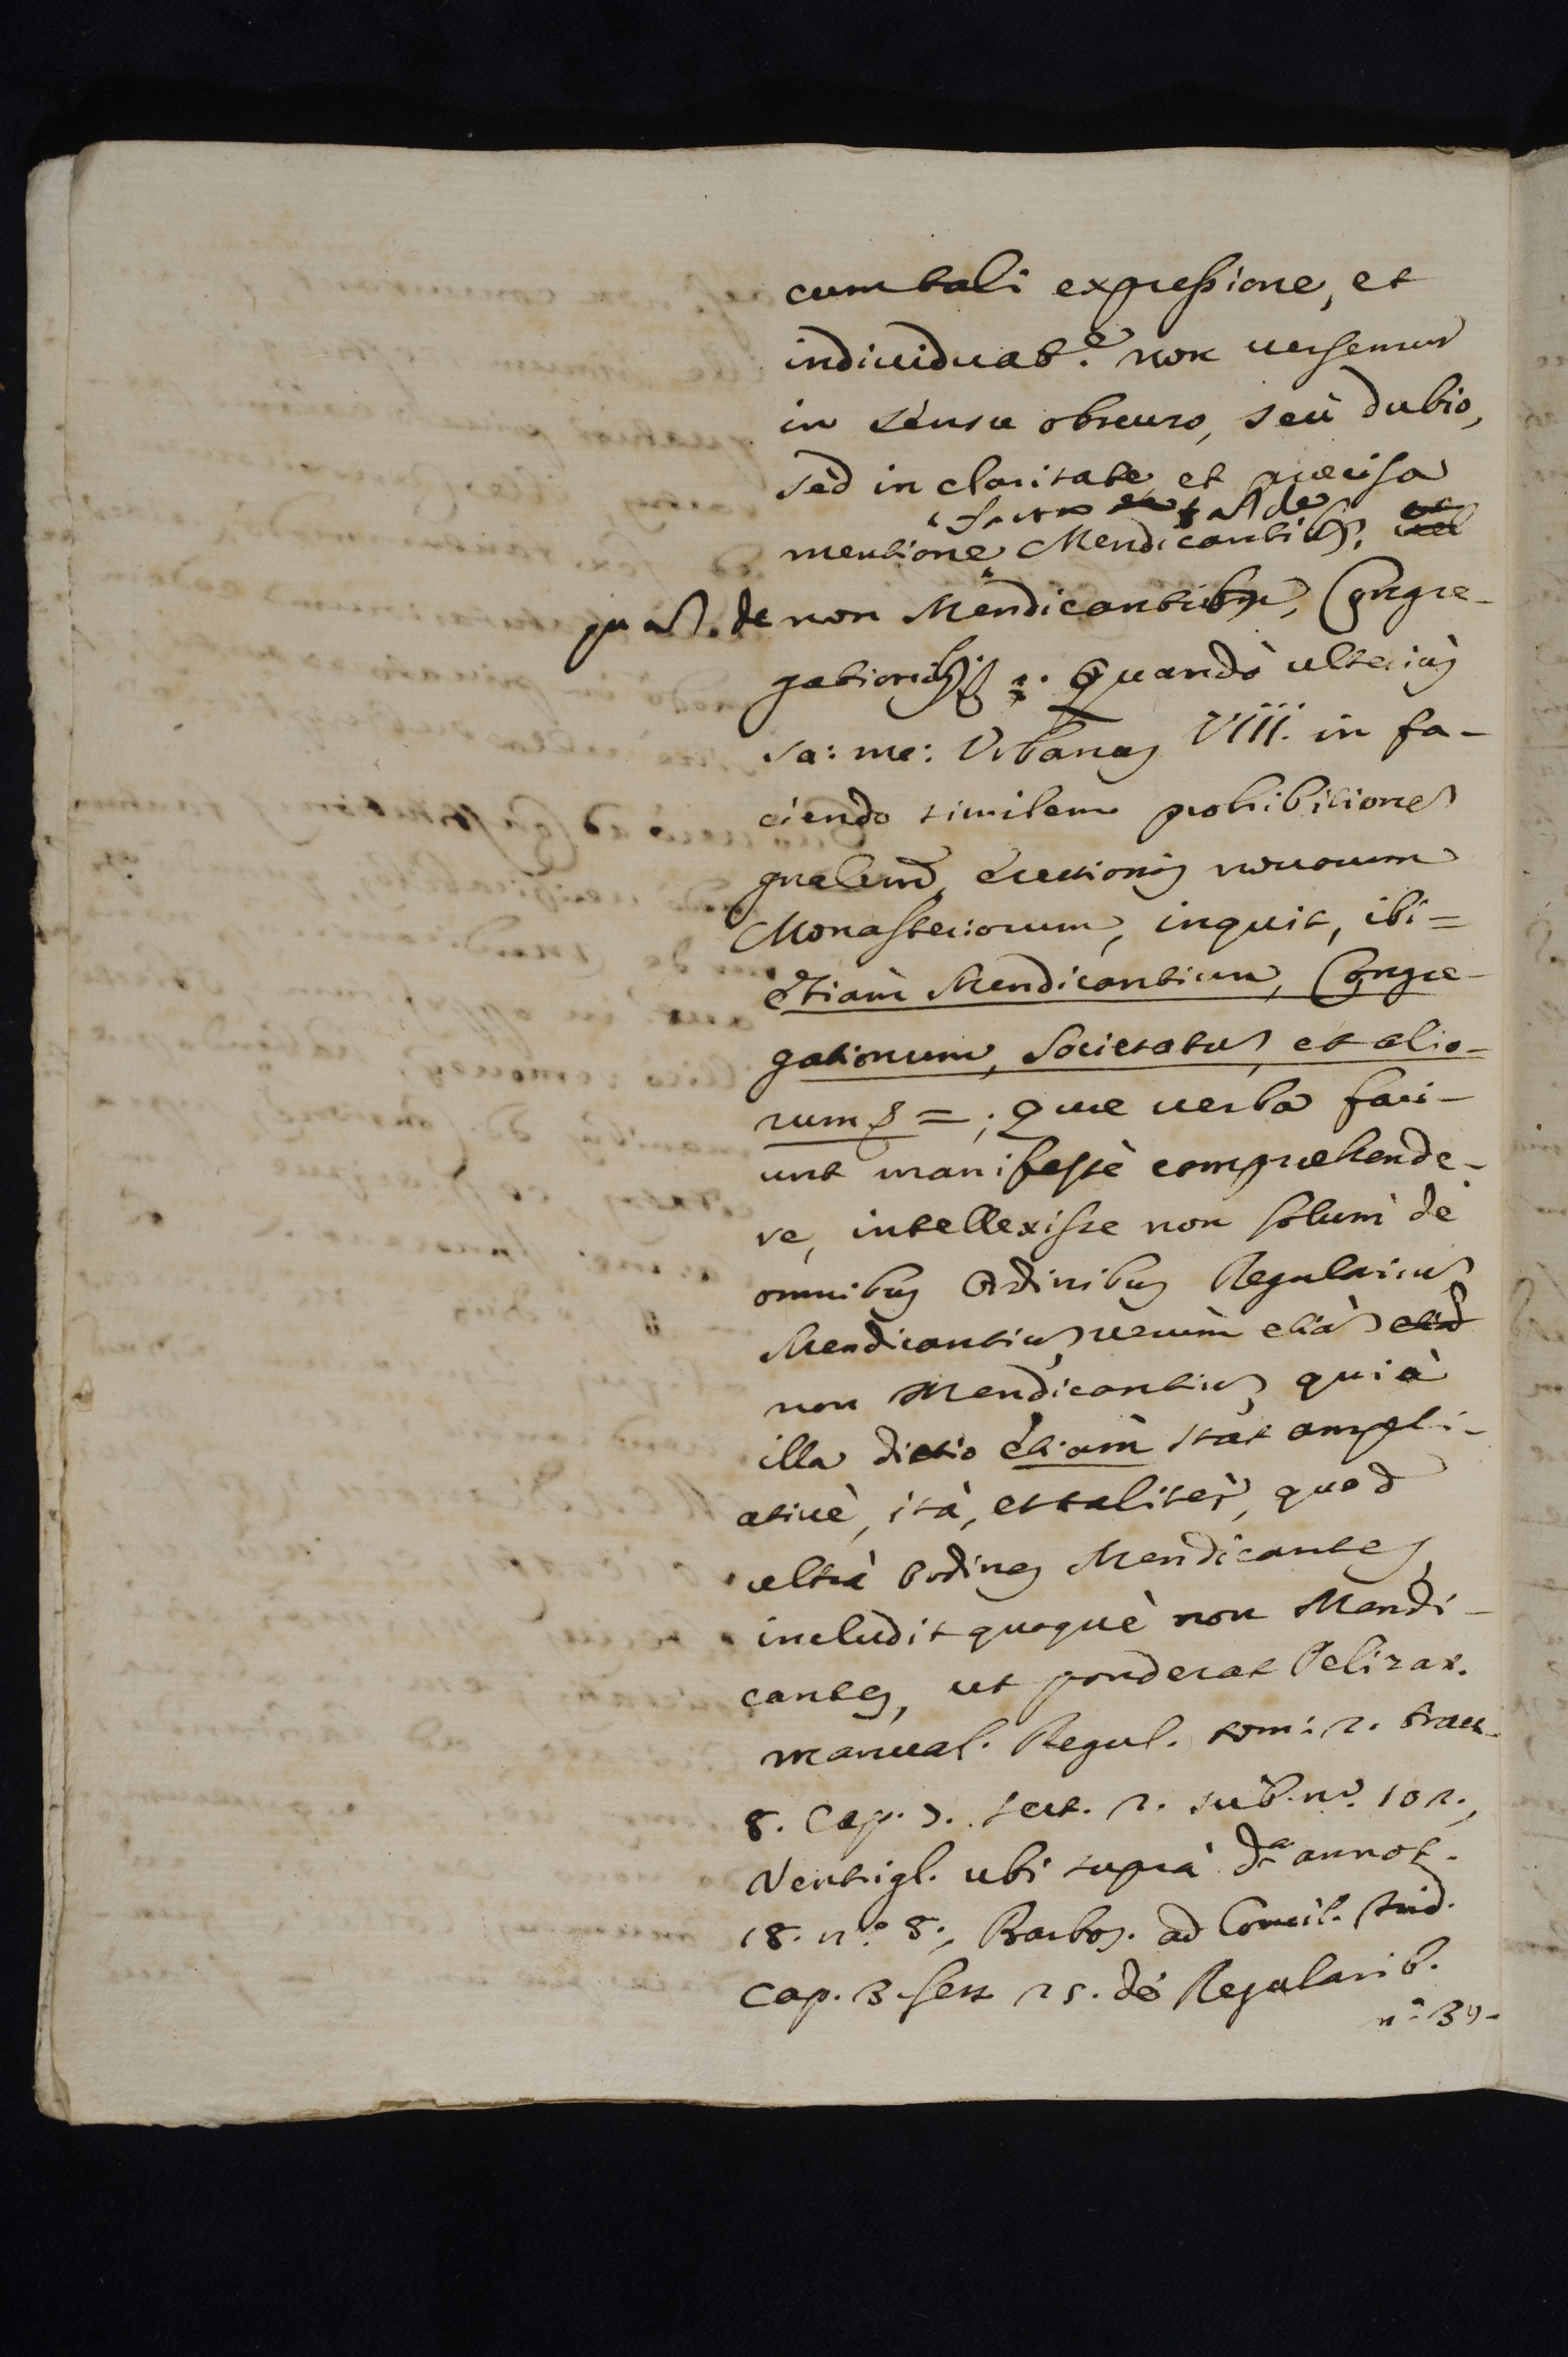 cum tali expressione, et
individuat.e non versemur
in sensu obscuro, seù dubio,
sèd in claritate, et præcisa
facta tàm de
mentione Mendicantibs, vel
quàm de non Mendicantibus, Congre-
gationibus &. Quandò ulteriùs
sa: me: Urbanus VIII. in fa-
ciendo similem prohibitionem
gnalem erectionis novorum
Monasteriorum, inquit, ibi =
etiàm Mendicantium, Congre-
gationum, Societatum, et alio-
rum & = ; Quæ verba faci-
unt manifestè comprehende-
re, intellexisse non solùm de
omnibus Ordinibus Regularium
Mendicantium, verùm etiàm etiam
non Mendicantium, quià
illa dictio etiàm stat ampli-
ativè, ità, et taliter, quod
ultrà Ordines Mendicantes,
includit quoquè non Mendi-
cantes, ut ponderat Pelizar.
manual. Regul. tom: 2. tract.
8. Cap. 3. sect. 2. sub. no. 102.,
Ventrigl. ubi suprà da annot.
18. no. 8., Barbos. ad Concil. Trid.
Cap. 3. sess. 25. de Regularib.
no. 39.